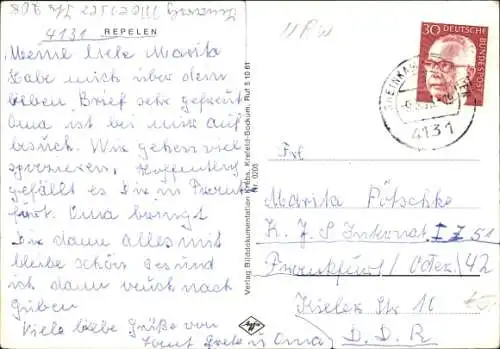 4131 REPELEN
Meine liebe Marita
habe mich über dein
lieben Brief sehr gefreut
Oma ist bei mir auf
besuch. Wir gehen viel
spazieren, hoffentlich
gefällt es Dir in Frankfurt
Oma bringt
Dir dann alles mit
bleibe schön gesund
ist dann zurück nach
Guben
Viele liebe Grüße von
Tant Grete u Oma
Verlag Bilddokumentation Krebs, Krefeld-Bockum, Ruf 5 10 61
Nr. 0208
30 DEUTSCHE BUNDESPOST
4131
Frl
Marita Pötschke
K. J. S Internat I Z 51
Frankfurt/Oder/42
Kieler Str 10
D. D. R